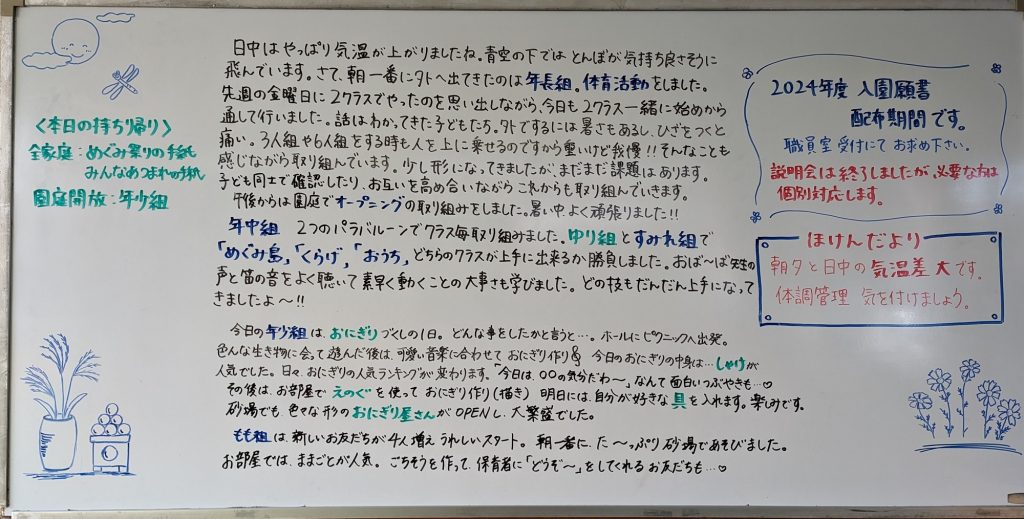 〈本日の持ち帰り〉
全家庭：めぐみ祭りの手紙
みんなあつまれの手紙
園庭開放：年少組
日中はやっぱり気温が上がりましたね。青空の下ではとんぼが気持ち良さそうに
飛んでいます。さて、朝一番に外へ出てきたのは年長組。体育活動をしました。
先週の金曜日に2クラスでやったのを思い出しながら、今日も2クラス一緒に始めから
通して行いました。話はわかってきた子どもたち。外でするには暑さもあるし、ひざをつくと
痛い。3人組や6人組をする時も人を上に乗せるのですから重いけど我慢!!そんなことも
感じながら取り組んでいます。少し形になってきましたが、まだまだ課題はあります。
子ども同士で確認したり、お互いを高め合いながらこれからも取り組んでいきます。
午後からは園庭でオープニングの取り組みをしました。暑い中よく頑張りました!!
年中組 2つのパラバルーンでクラス毎取り組みました。ゆり組とすみれ組で
「めぐみ島」「くらげ」「おうち」どちらのクラスが上手に出来るか勝負しました。おば〜ば先生の
声と笛の音をよく聴いて素早く動くことの大事さも学びました。どの技もだんだん上手になって
きましたよ〜!!
今日の年少組は、おにぎりづくしの1日。どんな事をしたかと言うと…。ホールにピクニックへ出発。
色んな生き物に会って遊んだ後は、可愛い音楽に合わせておにぎり作り 今日のおにぎりの中身は…しゃけが
人気でした。日々、おにぎりの人気ランキングが変わります。「今日は、〇〇の気分だわ〜」なんて面白いつぶやきも…♡
その後は、お部屋でえのぐを使っておにぎり作り(描き) 明日には、自分が好きな具を入れます。楽しみです。
砂場でも色々な形のおにぎり屋さんがOPENし、大繁盛でした。
もも組は、新しいお友だちが4人増えうれしいスタート。朝一番に、た〜っぷり砂場であそびました。
お部屋では、ままごとが人気。ごちそうを作って、保育者に「どうぞ〜」をしてくれるお友だちも…♡
2024年度 入園願書
配布期間です。
職員室受付にてお求め下さい。
説明会は終了しましたが、必要な方は
個別対応します。
ほけんだより
朝夕と日中の気温差大です。
体調管理 気を付けましょう。